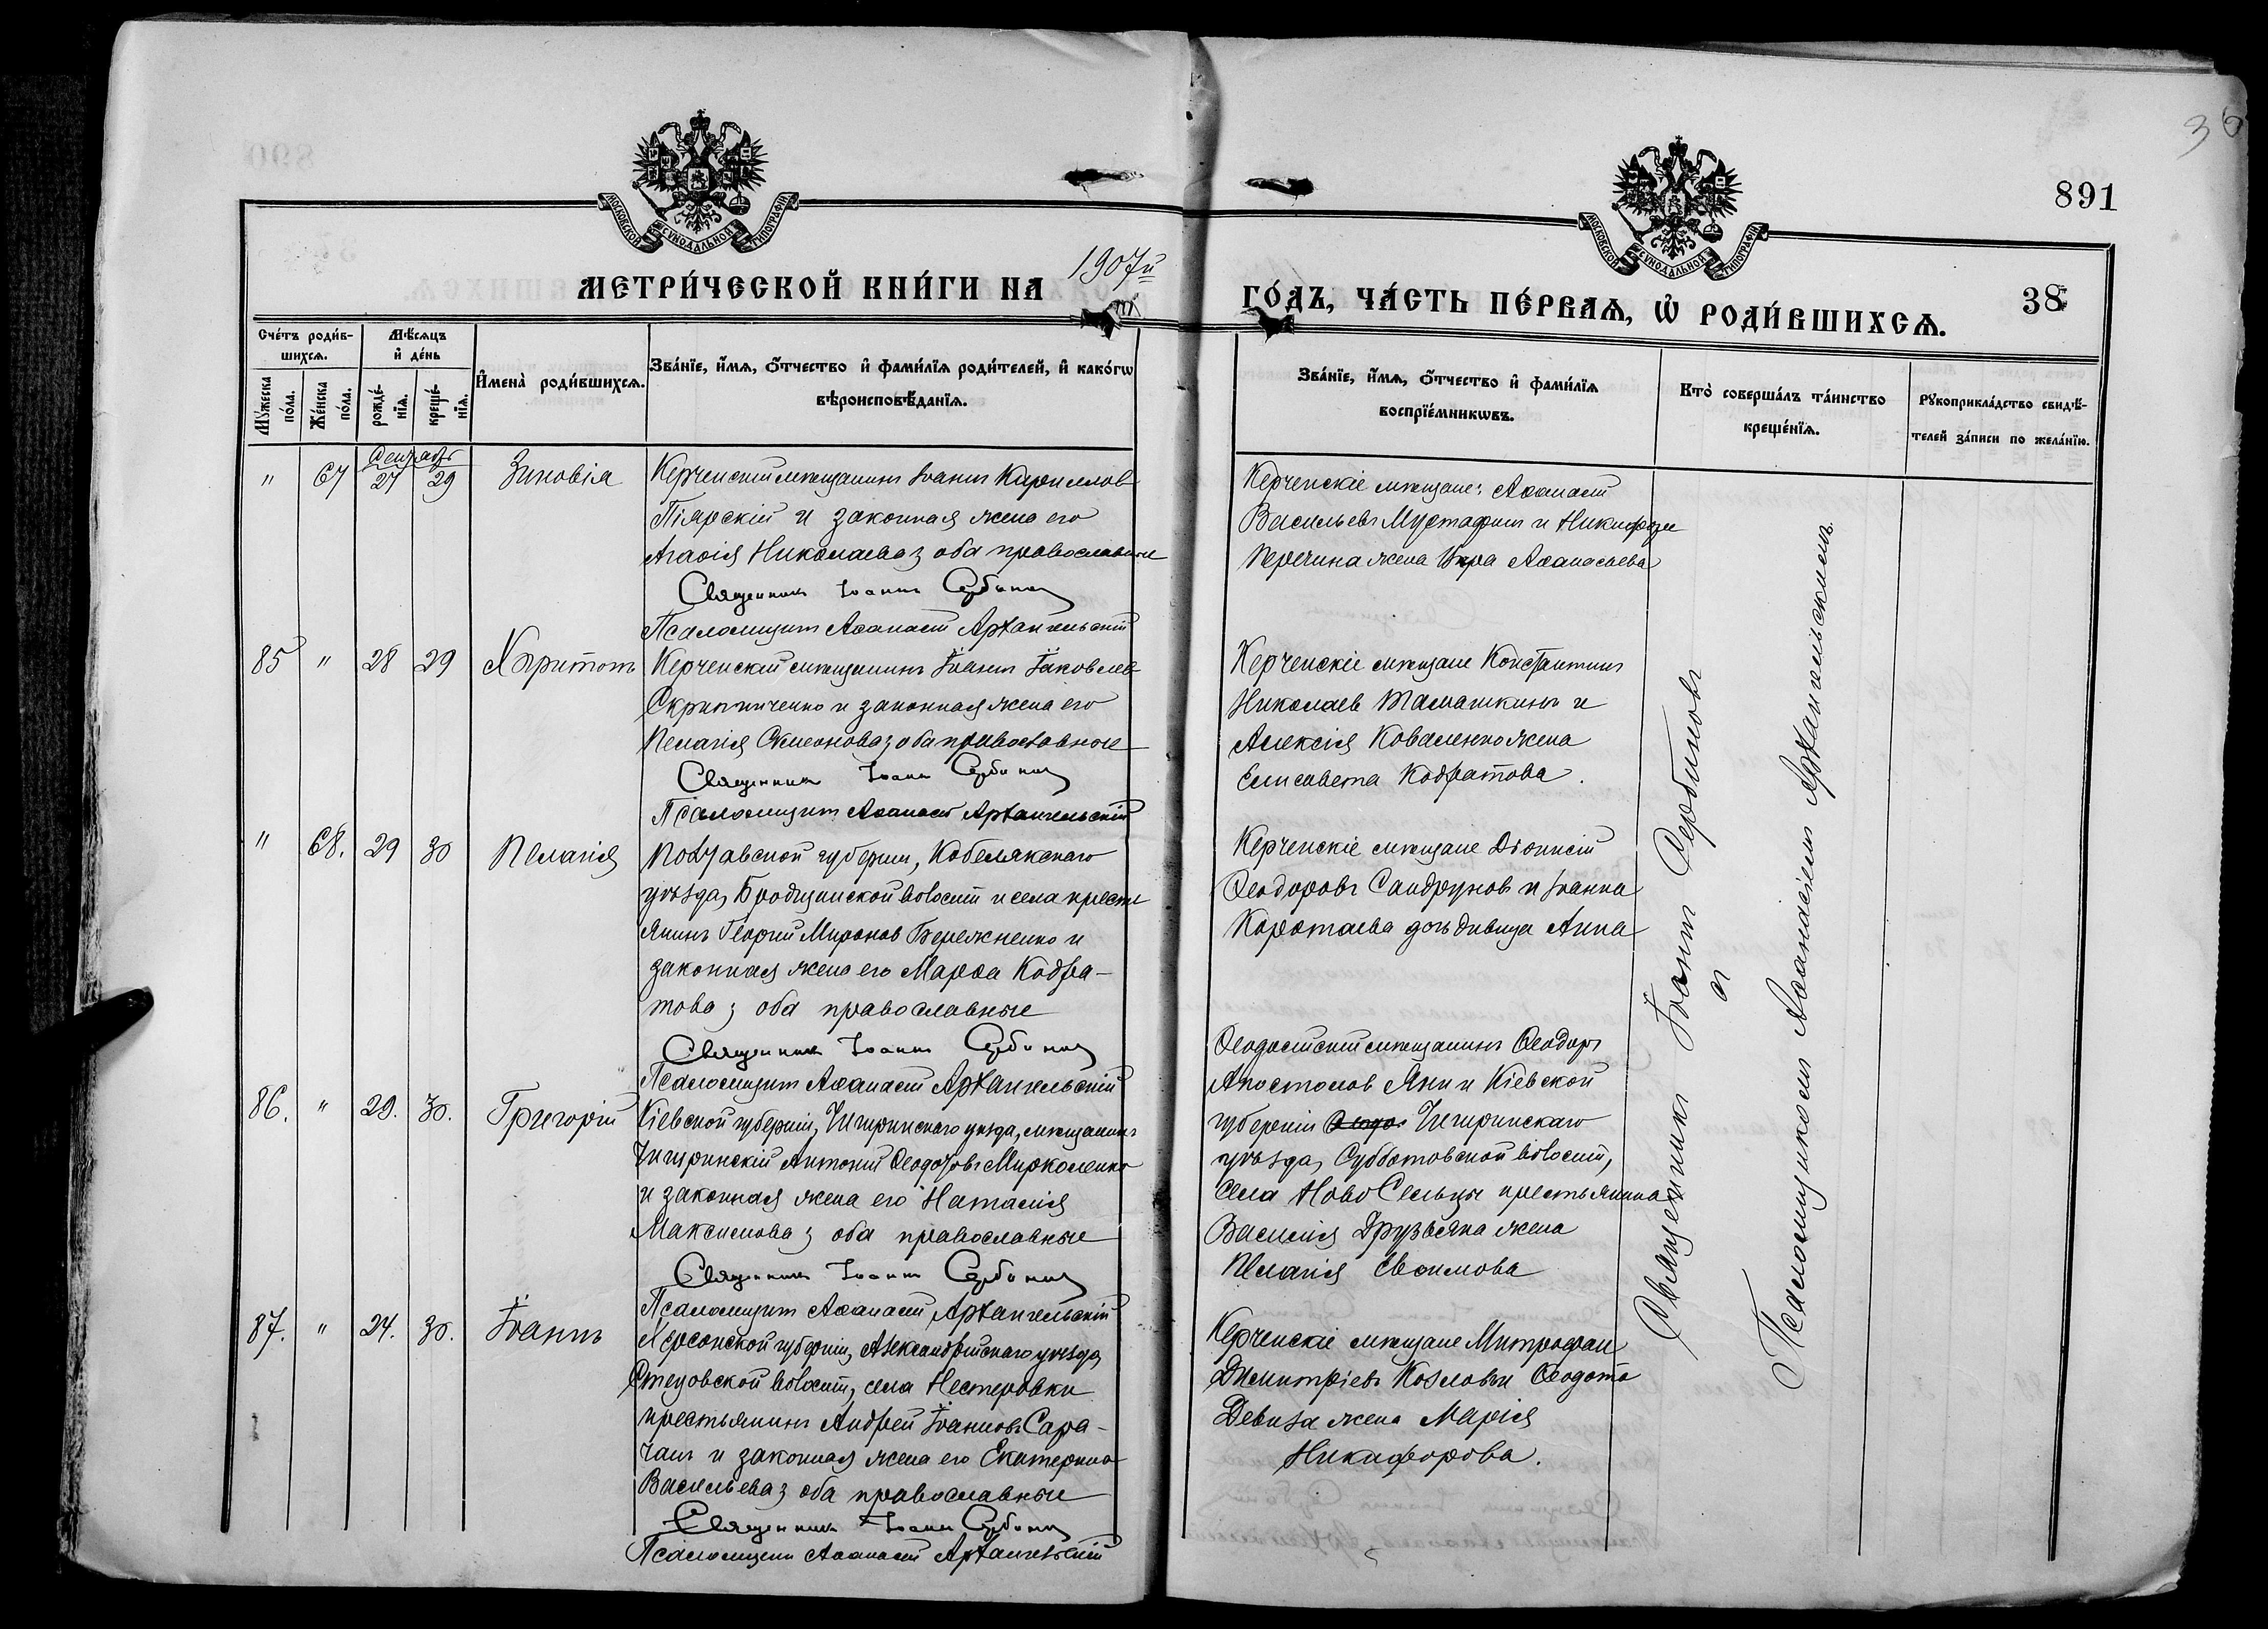 36
891
МОСКОВСКОЙ СѴНОДАЛЬНОЙ ТИПОГРАФІИ
МОСКОВСКОЙ СѴНОДАЛЬНОЙ ТИПОГРАФІИ
МЕТРИ́ЧЕСКОЙ КНИ́ГИ НА 1907й
ГО́ДЪ, ЧА́СТЬ ПЕ́РВАѦ, Ѡ҆ РОДИ́ВШИХСѦ.
38
Сче́тъ роди́в-
шихсѧ.
Мꙋ́жеска по́ла.
Же́нска по́ла.
Мѣ́сѧцъ и҆ де́нь
рожде́-
нїѧ.
креще́-
нїѧ.
И҆мена̀ роди́вшихсѧ.
Зва́нїе, и҆́мѧ, ѻ҆́тчество и҆ фами́лїѧ роди́телей, и҆ како́гѡ
вѣроисповѣ́данїѧ.
Зва́нїе, и҆́мѧ, ѻ҆́тчество и҆ фами́лїѧ
воспрїе́мникѡвъ.
Кто̀ соверша́лъ та́инство
креще́нїѧ.
Рꙋкоприкла́дство свидѣ́-
телей за́писи по жела́нїю.
Сентябрь
" 67 27 29 Зиновія
Керченскій мѣщанинъ Іоаннъ Кириллов
Піярскій и законная жена его
Агаѳія Николаева; оба православные
Священникъ Іоаннъ Сербиновъ
Псаломщикъ Аѳанасій Архангельскій
Керченскіе мѣщане: Аѳанасій
Васильевъ Мустафинъ и Никифора
Перечина жена Вѣра Аѳанасьева
85 " 28 29 Харитонъ
Керченскій мѣщанинъ Іоаннъ Іаковлев
Скрипниченко и законная жена его
Пелагія Сѵмеонова; оба православные
Священникъ Іоаннъ Сербиновъ
Псаломщикъ Аѳанасій Архангельскій
Керченскіе мѣщане Константинъ
Николаев Тамашкинъ и
Алексія Коваленко жена
Елисавета Кодратова.
" 68. 29 30 Пелагія
Полтавской губерніи, Кобелякскаго
уѣзда, Бродщинской волости и села кресть
янинъ Георгій Миронов Бережненко и
законная жена его Марѳа Кодра-
това; оба православные
Священникъ Іоаннъ Сербиновъ
Псаломщикъ Аѳанасій Архангельскій
Керченскіе мѣщане Діонисій
Ѳеодоровъ Сандруновъ и Іоанна
Коротаева дочь дѣвица Анна
86. " 29. 30. Григорій
Кіевской губерніи, Чигиринскаго уѣзда, мѣщанинъ
Чигиринскій Антоній Ѳеодотовъ Мирколенко
и законная жена его Наталія
Максимова; оба православные
Священникъ Іоаннъ Сербиновъ
Псаломщикъ Аѳанасій Архангельскій
Ѳеодосійскій мѣщанинъ Ѳеодоръ
Апостолов Яни и Кіевской
губерніи Чигиринскаго
уѣзда, Субботовской волости,
села Ново Сельцы крестьянина
Василія Друзьяка жена
Пелагія Евѳимова
87. " 24. 30. Іоаннъ
Херсонской губерніи, Александрійскаго уѣзда,
Стецовской волости, села Нестеровки
крестьянинъ Андрей Іоанновъ Сара-
чанъ и законная жена его Екатерина
Васильева; оба православные
Священникъ Іоаннъ Сербиновъ
Псаломщикъ Аѳанасій Архангельскій
Керченскіе мѣщане Митрофан
Димитріевъ Козловъ и Ѳеодота
Девиза жена Марія
Никифорова.
Священникъ Іоаннъ Сербиновъ
и
Псаломщикомъ Аѳанасіемъ Архангельскимъ